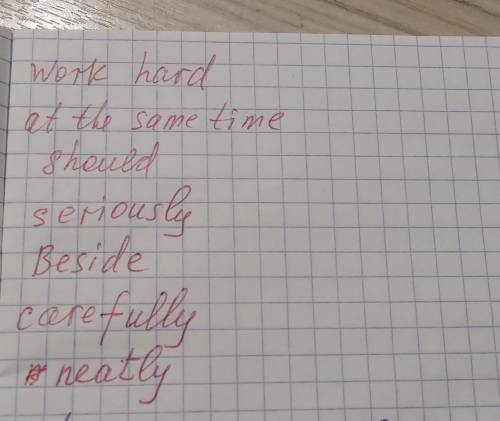 work hard
at the same time
should
seriously
Beside
carefully
neatly